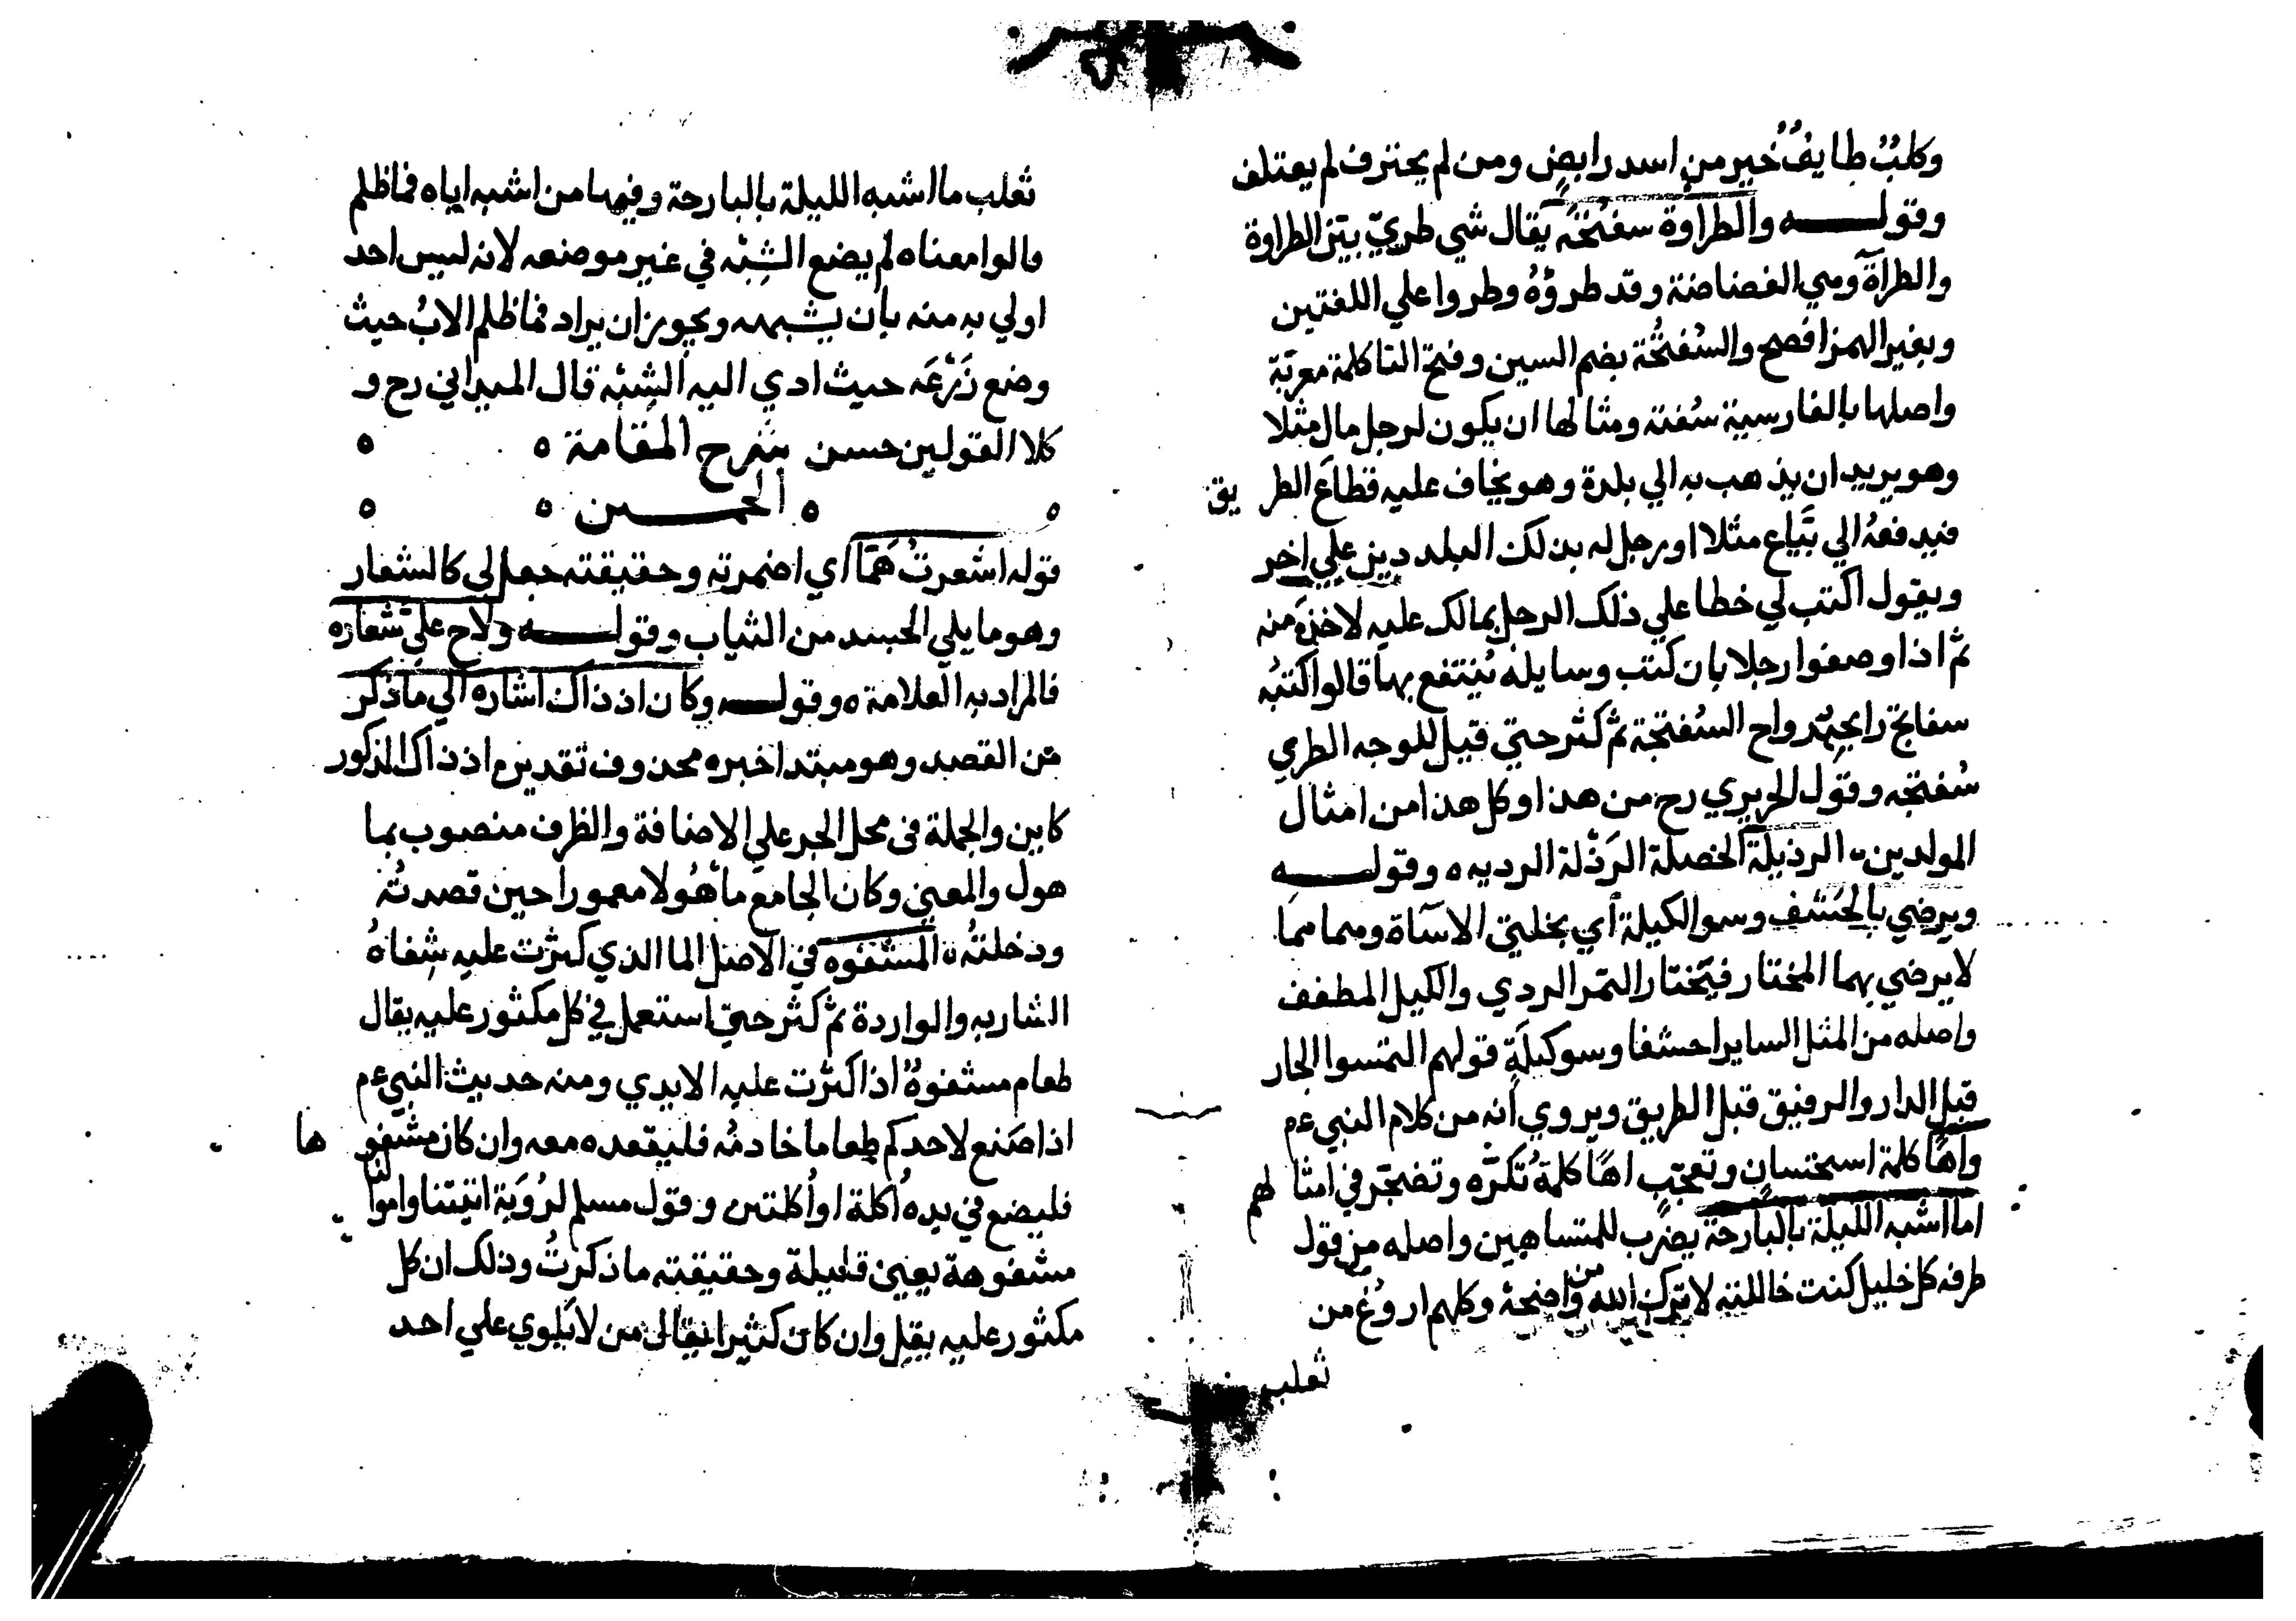 وكلبٌ طايفٌ خير من اسد رابض ومن لم يحترف لم يعتلف
وقولـــه والطراوة سفتجة يقال شي طريّ بيّن الطراوة
والطرآة وهي الغضاضة وقد طروُهُ وطروا علي اللغتين
وبغير الهمز افصح والسُفتَجة بضم السين وفتح التا كلمة معربّة
واصلها بالفارسية سُفته ومثالها ان يكون لرجل مال مثلا
وهو يريد ان يذهب به الي بلدة وهو يخاف عليه قطاع الطريق
فيدفعهُ الي بيّاع مثلا او رجل له بذلك البلد دين علي اخر
ويقول اكتب لي خطا علي ذلك الرجل بمالك عليه لاخذه منه
ثم اذا وصفوا رجلا بان كتب وسايله يُنتفع بها قالوا كتبُه
سفاتج رايجة رواح السُفتجة ثم كثر حتي قيل للوجه الطري
سُفتجه وقول الحريري رح من هذا وكل هذا من امثال
المولدين الرذيلة الخصلة الرَذْلة الرديه ه وقولـــه
ويرضي بالحَشَف وسو الكيلة أي بخلتي الاسآة وهما مما
لا يرضي بهما المختار فيختار التمر الردي والكيل المطفف
واصله من المثل الساير احشفا وسو كيلةٍ قولهم التمسوا الجار
قبل الدار والرفيق قبل الطريق ويروي أنه من كلام النبي عم
واهًا كلمة استحسان وتعجّب اهًا كلمة تكرّه وتضجّر في امثالهم
اما اشبه الليلة بالبارحة يضرب للمتساهين واصله من قول
طرفه كل خليل كنت خاللته لا ترك الله من واضحة وكلهم اروغ من
ثعلب
ثعلب ما اشبه الليلة بالبارحة وفيها من اشبه اياه فماظلم
قالوا معناه لم يضع الشِبْه في غير موضعه لانه ليس احد
اولي به منه بأن يشبهه ويجوز ان يراد فماظلم الابُ حيث
وضع زَرْعَه حيث ادي اليه الشِبْه قال الميداني رح و
كلا القولين حسن شرح المقامة ه ه
ه ه الخمـــسين ه ه
قوله اشعرتُ هَمًّا اي اضمرته وحقيقته جعل لي كالشعار
وهو ما يلي الجسد من الثياب وقولـــه ولاح عليّ شعاره
فالمراد به العلامة ه وقولـــه وكان اذ ذاك اشاره الي ما ذكر
من القصد وهو مبتدا خبره محذوف تقديره اذ ذاك المذكور
كاين والجملة في محل الجر علي الاضافة والظرف منصوب بما
هول والمعني وكان الجامع مأهُولا معمورا حين قصدتُه
ودخلتُه المشفوه في الاصل الما الذي كثرت عليه شِفاهُ
الشاربه والواردة ثم كثر حتي استعمل في كل مكثور عليه يقال
طعام مشفوهٌ اذا كثرت عليه الايدي ومنه حديث النبي عم
اذا صَنع لاحدكم طعاما خادمُه فليقعده معه وان كان مشفوها
فليضع في يده اُكلة او اُكلتين وقول مسلم لرُؤبَة اتيتنا واموالنا
مشفوهة يعني قليلة وحقيقته ما ذكرتُ وذلك ان كل
مكثور عليه يقل وان كان كثيرا يقال من لا يلوي علي احد